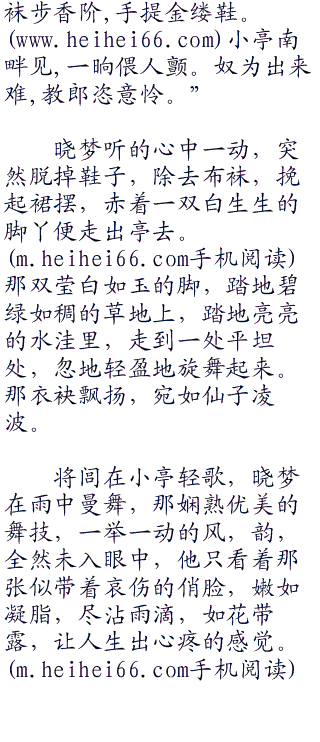 袜步香阶,手提金缕鞋。
(www.heihei66.com)小亭南
畔见,一晌偎人颤。奴为出来
难,教郎恣意怜。”
晓梦听的心中一动，突
然脱掉鞋子，除去布袜，挽
起裙摆，赤着一双白生生的
脚丫便走出亭去。
(m.heihei66.com手机阅读)
那双莹白如玉的脚，踏地碧
绿如稠的草地上，踏地亮亮
的水洼里，走到一处平坦
处，忽地轻盈地旋舞起来。
那衣袂飘扬，宛如仙子凌
波。
将闾在小亭轻歌，晓梦
在雨中曼舞，那娴熟优美的
舞技，一举一动的风，韵，
全然未入眼中，他只看着那
张似带着哀伤的俏脸，嫩如
凝脂，尽沾雨滴，如花带
露，让人生出心疼的感觉。
(m.heihei66.com手机阅读)